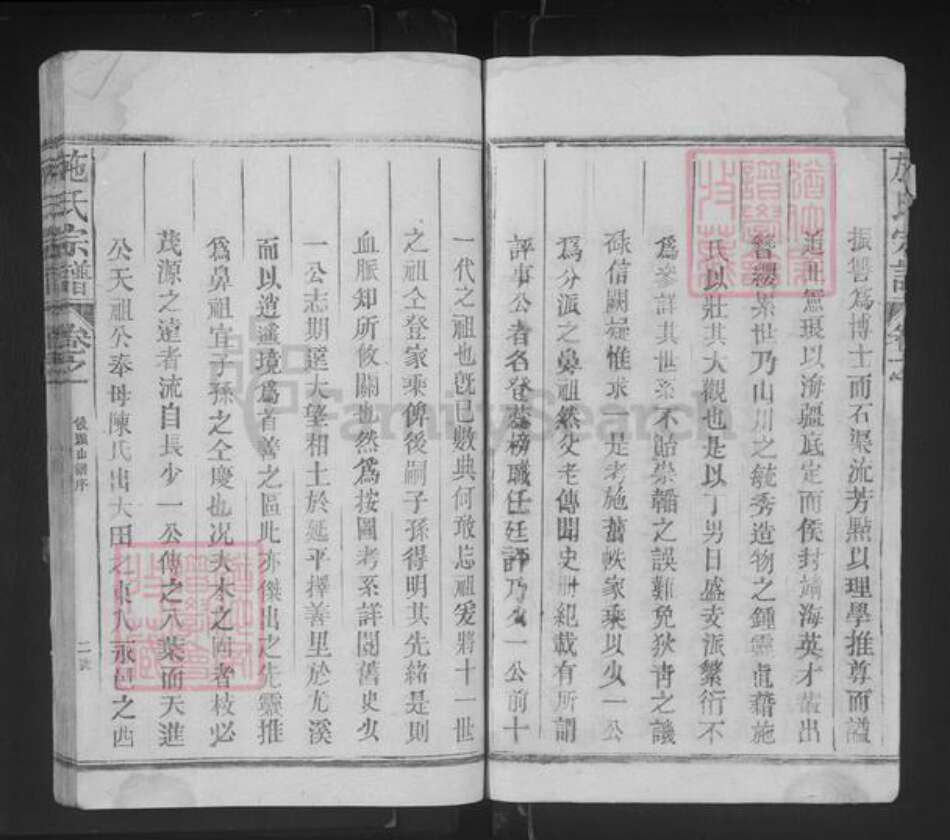 施氏宗譜 卷之一
振讐爲博士而石渠流芳㸃以理學推尊而謚
追世憲琅以海疆底定而侯封靖海英才叢出
簪纓累世乃山川之毓秀造物之鍾靈直藉施
氏以壯其大觀也是以丁男日盛支派繁衍不
爲參詳其世系不貽崇韜之誤難免狄靑之譏
祿信闕疑惟求一是考施舊帙家乘以少一公
爲分派之鼻祖然父老傳聞史册紀載有所謂
評事公者名登蕊榜職任廷評乃少一公前十
一代之祖也旣已數典何敢忘祖爰將十一世
之祖仝登家乘俾後嗣子孫得明其先緒是則
血脈知所攸關也然爲按圖考系詳閱舊史少
一公志期達大望相土於延平擇善里於尤溪
而以逍遙境爲首善之區此亦傑出之先靈推
爲鼻祖宜子孫之仝慶也况夫木之固者枝必
茂源之遠者流自長少一公傳之八葉而天進
公天祖公奉母陳氏出大田之東入永邑之西
施氏宗譜 卷之一
二